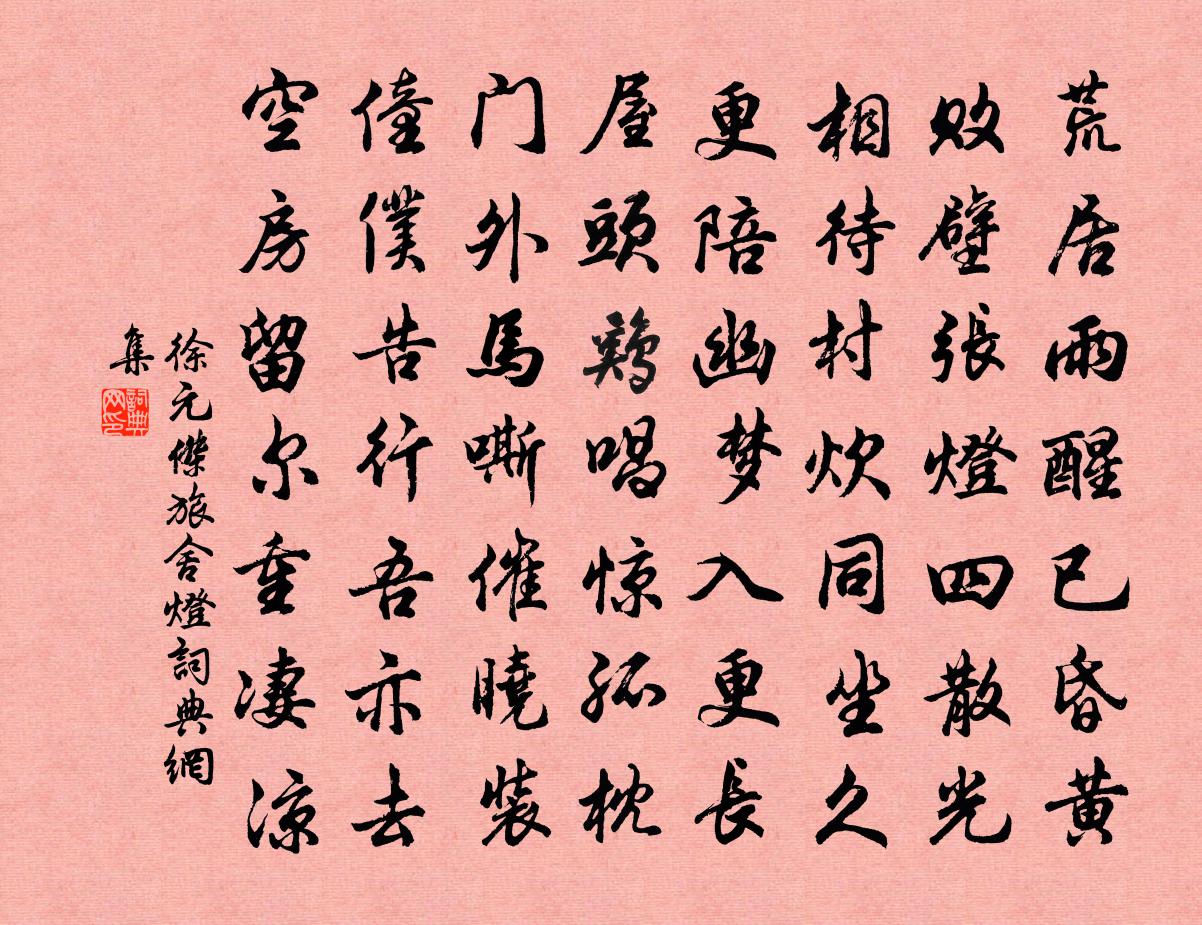 荒居雨醒已昏黄
败壁張燈四散光
相待村炊同坐久
更陪幽梦入更長
屋頭鷄唱惊孤枕
门外馬嘶催曉装
僮僕告行吾亦去
空房留尔重凄凉
徐元傑旅舍燈詞典網
集
詞典
网印